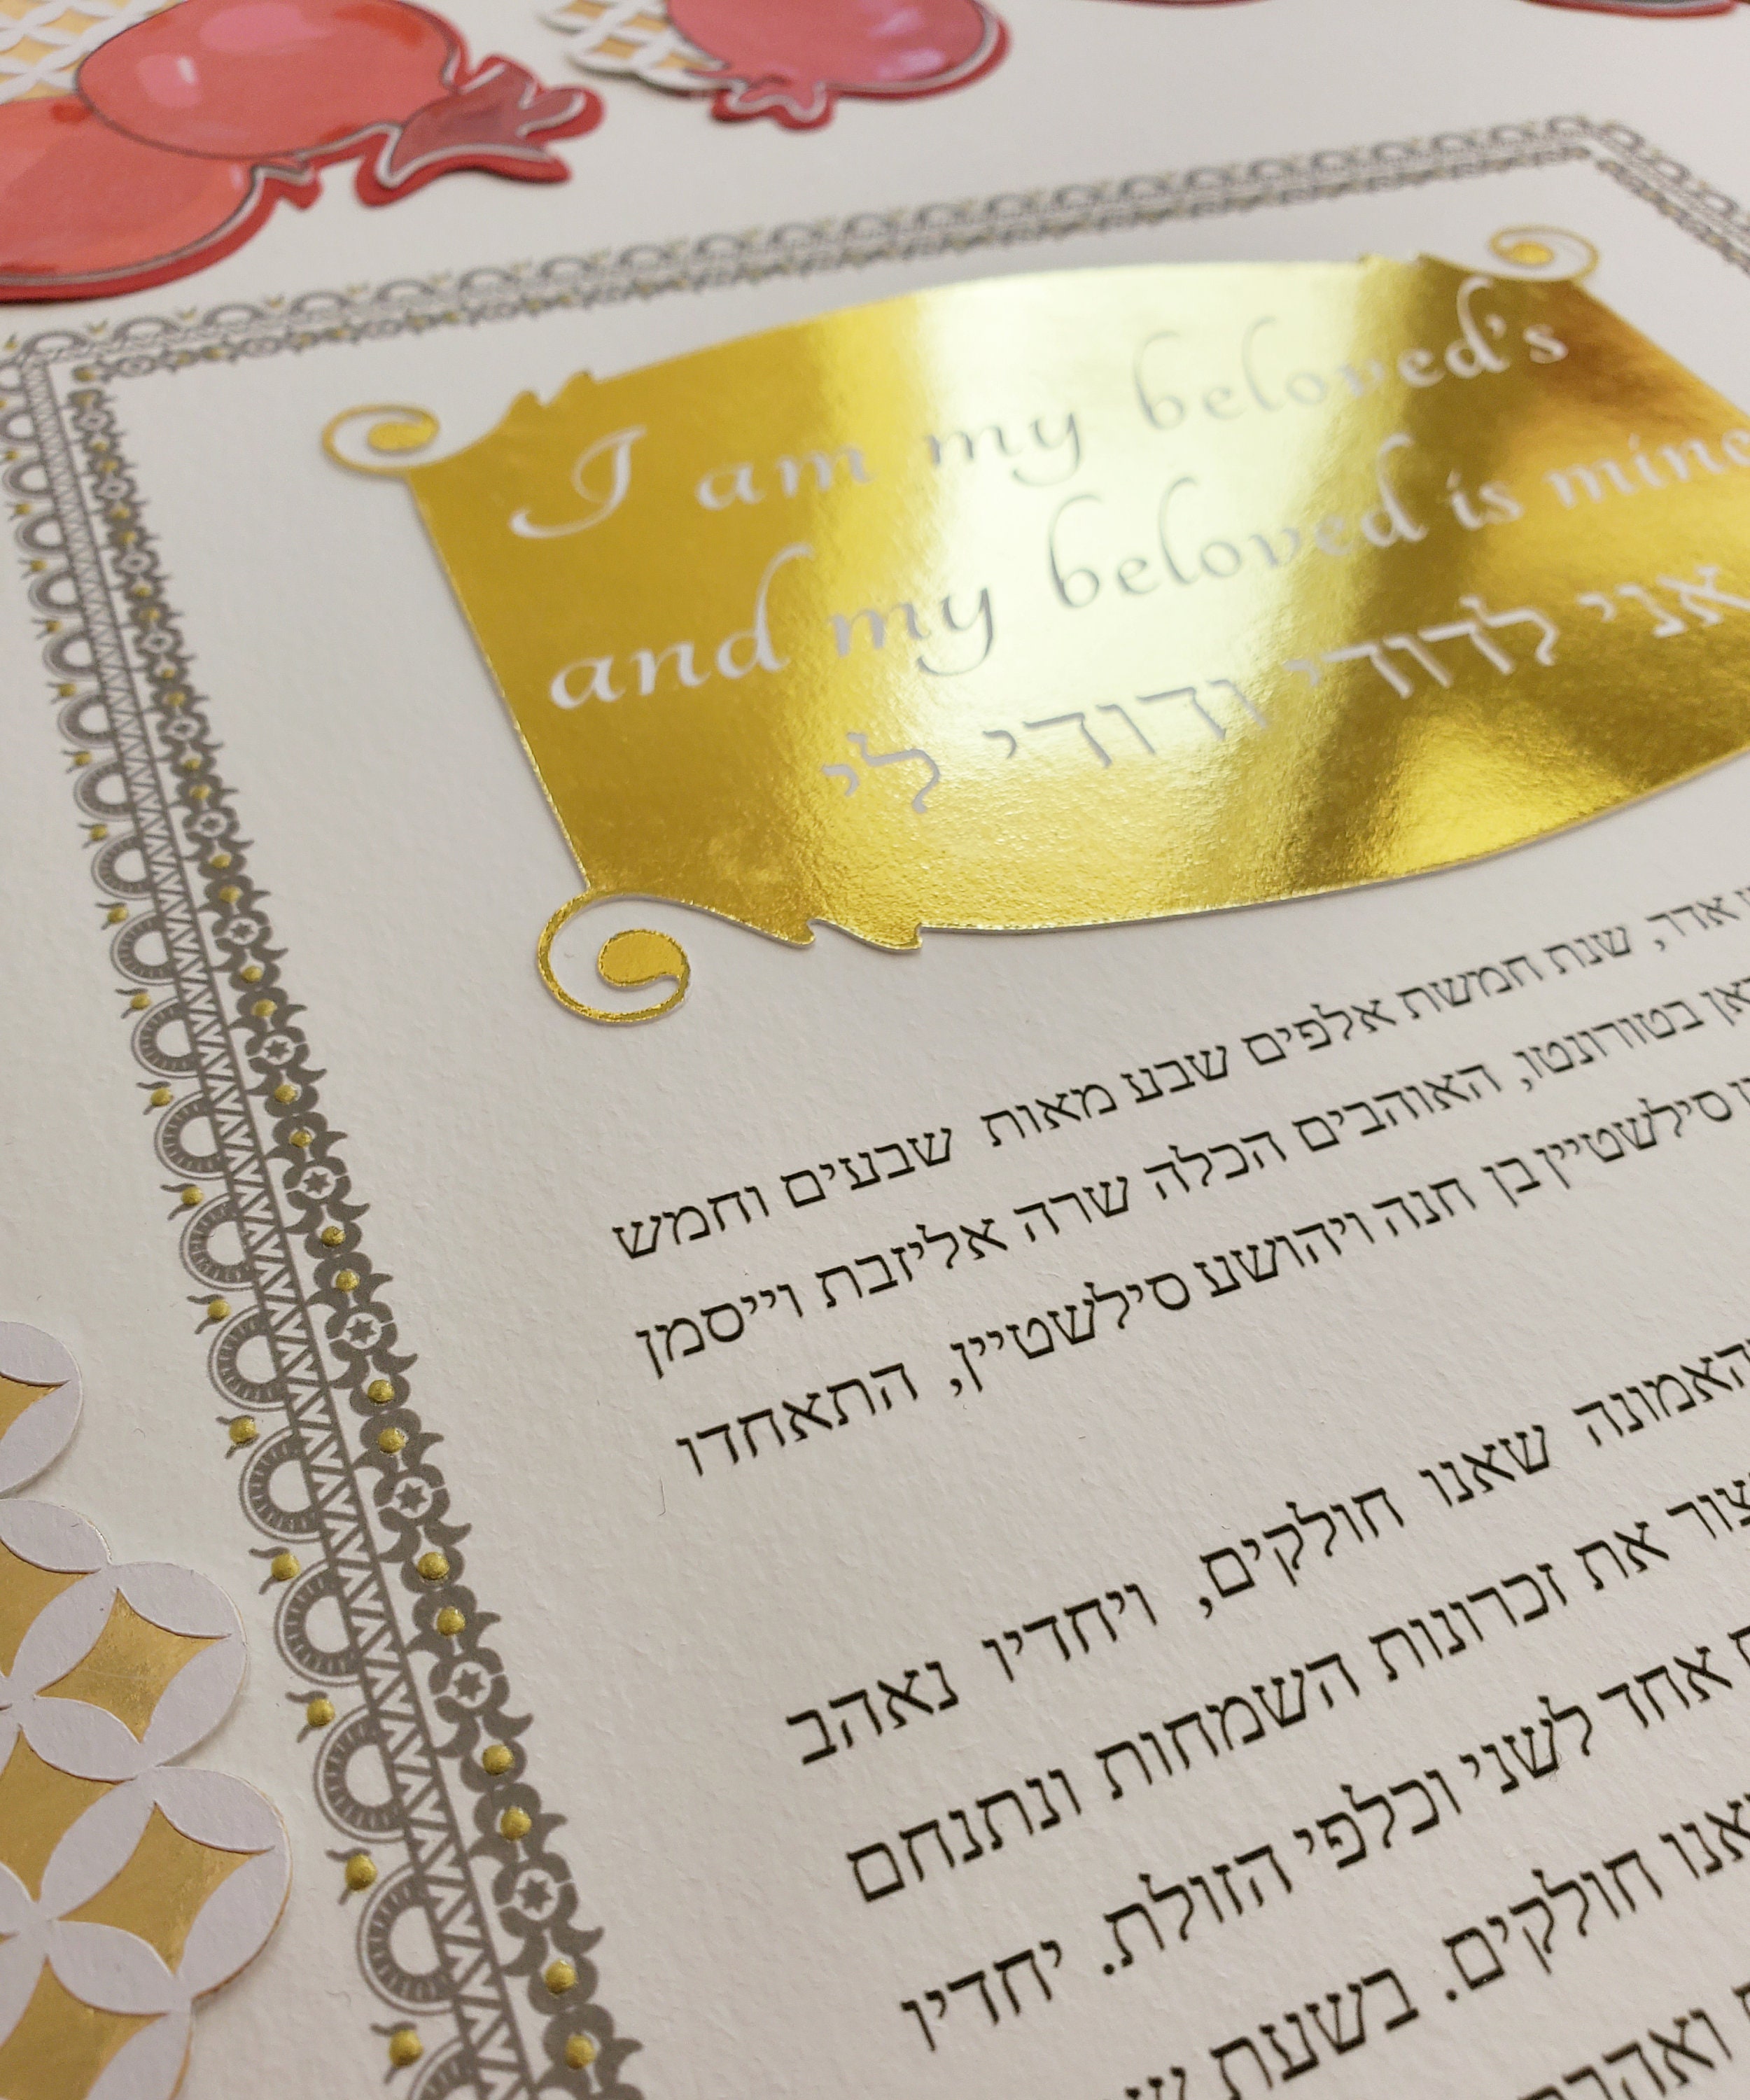 I am my beloved's
and my beloved is mine
אני לדודי ודודי לי
אדר, שנת חמשת אלפים שבע מאות שבעים וחמש
בטורונטו, האוהבים הכלה שרה אליזבת וייסמן
סילשטיין בן חנה ויהושע סילשטיין, התאחדו
והאמונה שאנו חולקים, ויחדיו נאהב
את זכרונות השמחות ונתנחם
אחד לשני וכלפי הזולת. יחדיו
חולקים. בשעת